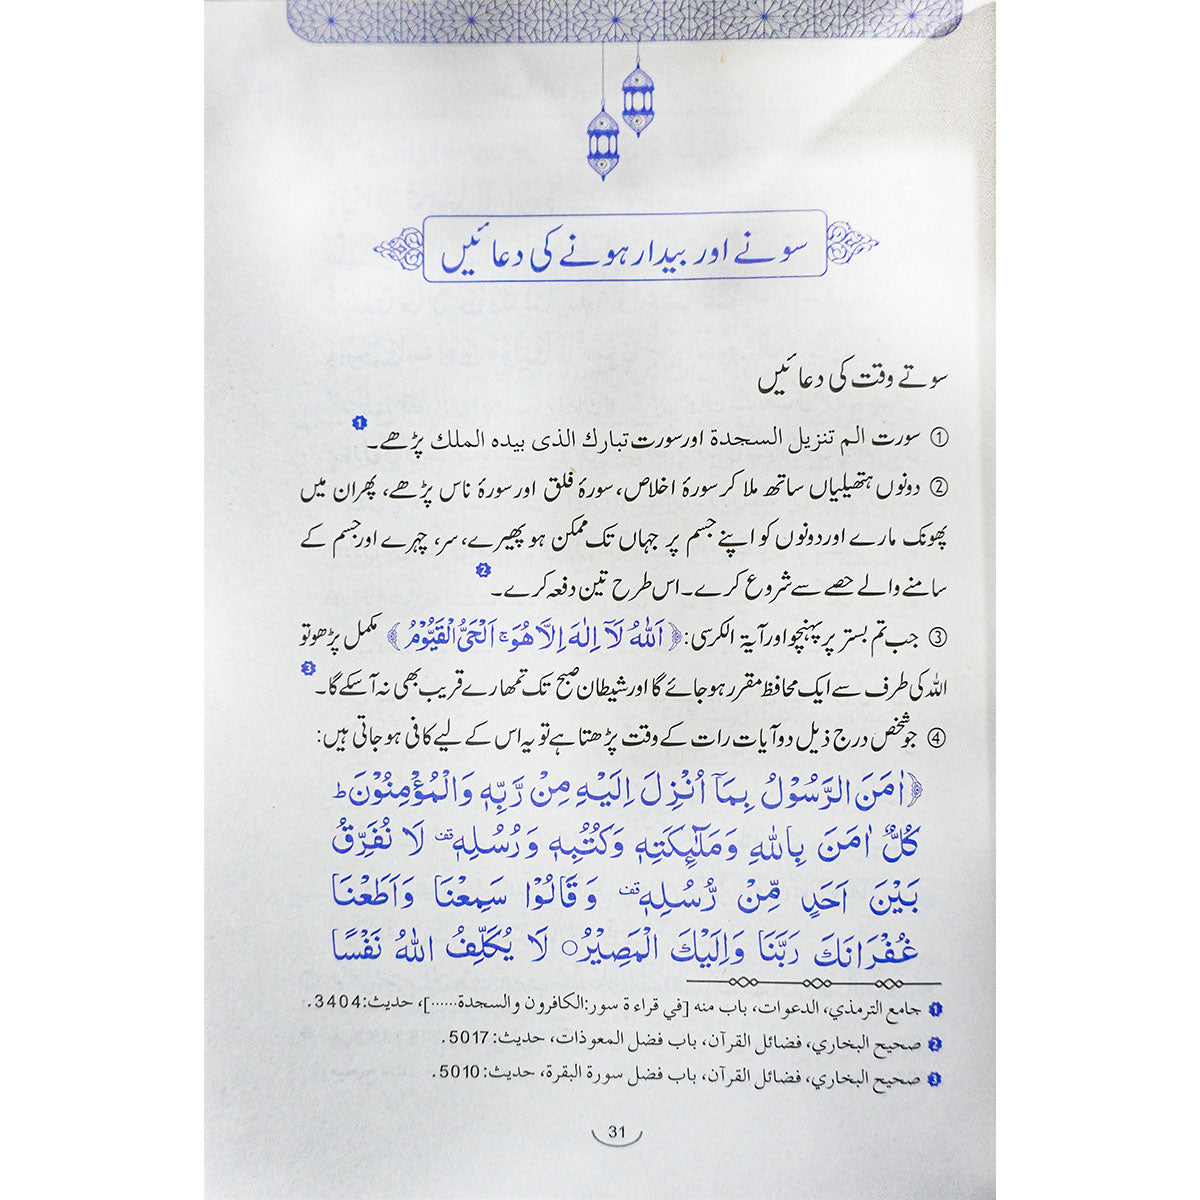 سونے اور بیدار ہونے کی دعائیں
سوتے وقت کی دعائیں
① سورت الم تنزیل السجدة اور سورت تبارك الذی بیده الملك پڑھے۔ 1
② دونوں ہتھیلیاں ساتھ ملا کر سورۂ اخلاص، سورۂ فلق اور سورۂ ناس پڑھے، پھر ان میں
پھونک مارے اور دونوں کو اپنے جسم پر جہاں تک ممکن ہو پھیرے، سر، چہرے اور جسم کے
سامنے والے حصے سے شروع کرے۔ اس طرح تین دفعہ کرے۔ 2
③ جب تم بستر پر پہنچو اور آیة الکرسی: ﴿اَللّٰهُ لَآ اِلٰهَ اِلَّا هُوَ ۚ اَلْحَيُّ الْقَيُّوْمُ﴾ مکمل پڑھو تو
اللہ کی طرف سے ایک محافظ مقرر ہو جائے گا اور شیطان صبح تک تمھارے قریب بھی نہ آ سکے گا۔ 3
④ جو شخص درج ذیل دو آیات رات کے وقت پڑھتا ہے تو یہ اس کے لیے کافی ہو جاتی ہیں:
﴿اٰمَنَ الرَّسُوْلُ بِمَآ اُنْزِلَ اِلَيْهِ مِنْ رَّبِّهٖ وَالْمُؤْمِنُوْنَ ؕ
كُلٌّ اٰمَنَ بِاللّٰهِ وَمَلٰٓئِكَتِهٖ وَكُتُبِهٖ وَرُسُلِهٖ ۫ لَا نُفَرِّقُ
بَيْنَ اَحَدٍ مِّنْ رُّسُلِهٖ ۫ وَقَالُوْا سَمِعْنَا وَاَطَعْنَا
غُفْرَانَكَ رَبَّنَا وَاِلَيْكَ الْمَصِيْرُ ○ لَا يُكَلِّفُ اللّٰهُ نَفْسًا
1 جامع الترمذي، الدعوات، باب منه [في قراءة سور: الكافرون والسجدة......]، حدیث: 3404.
2 صحیح البخاري، فضائل القرآن، باب فضل المعوذات، حدیث: 5017.
3 صحیح البخاري، فضائل القرآن، باب فضل سورة البقرة، حدیث: 5010.
31